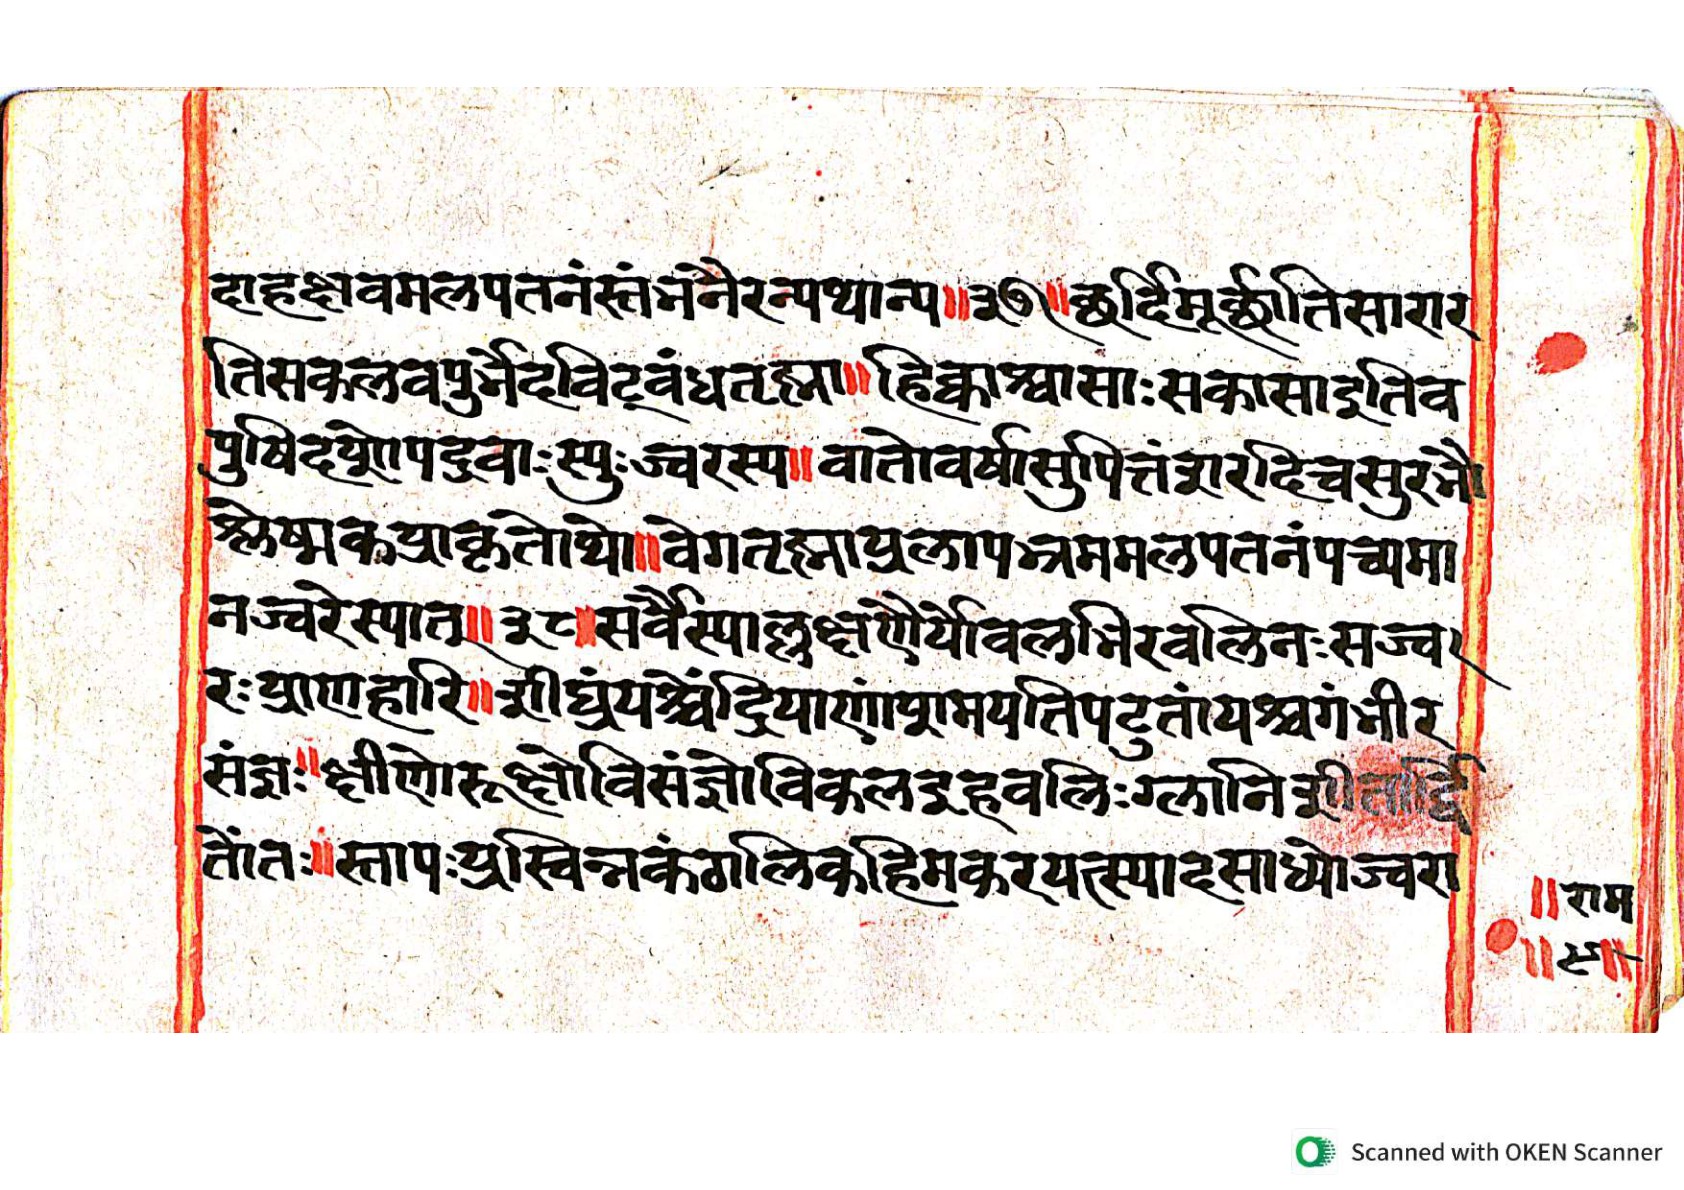 दाहक्षवमलपतनंस्तंभनैरन्यथान्य॥३७॥छर्दिमूर्छातिसारार
तिसकलवपुर्भेदविट्वंधतृह्मा॥हिक्काश्वासाःसकासाइतिव
पुषिदशोपद्रवाःस्युःज्वरस्य॥वातोवर्षासुपित्तंशरदिचसुरभौ
श्लेष्मकप्राकृतोथो॥वेगतृह्माप्रलापभ्रममलपतनंपच्यमा
नज्वरेस्यात्॥३८॥सर्वैस्याल्लक्षणैर्योवलभिरवलिनःसज्व
रःप्राणहारि॥शीघ्रंयश्चैंद्रियाणांशमयतिपटुतांयश्चगंभीर
संज्ञः॥क्षीणोरूक्षोविसंज्ञोविकलइहवलिःग्लानिशीतार्द्दि
तोंतः॥स्तापःप्रस्विन्नकंठालिकहिमकरयत्स्यादसाध्योज्वरा
॥राम
Scanned with OKEN Scanner